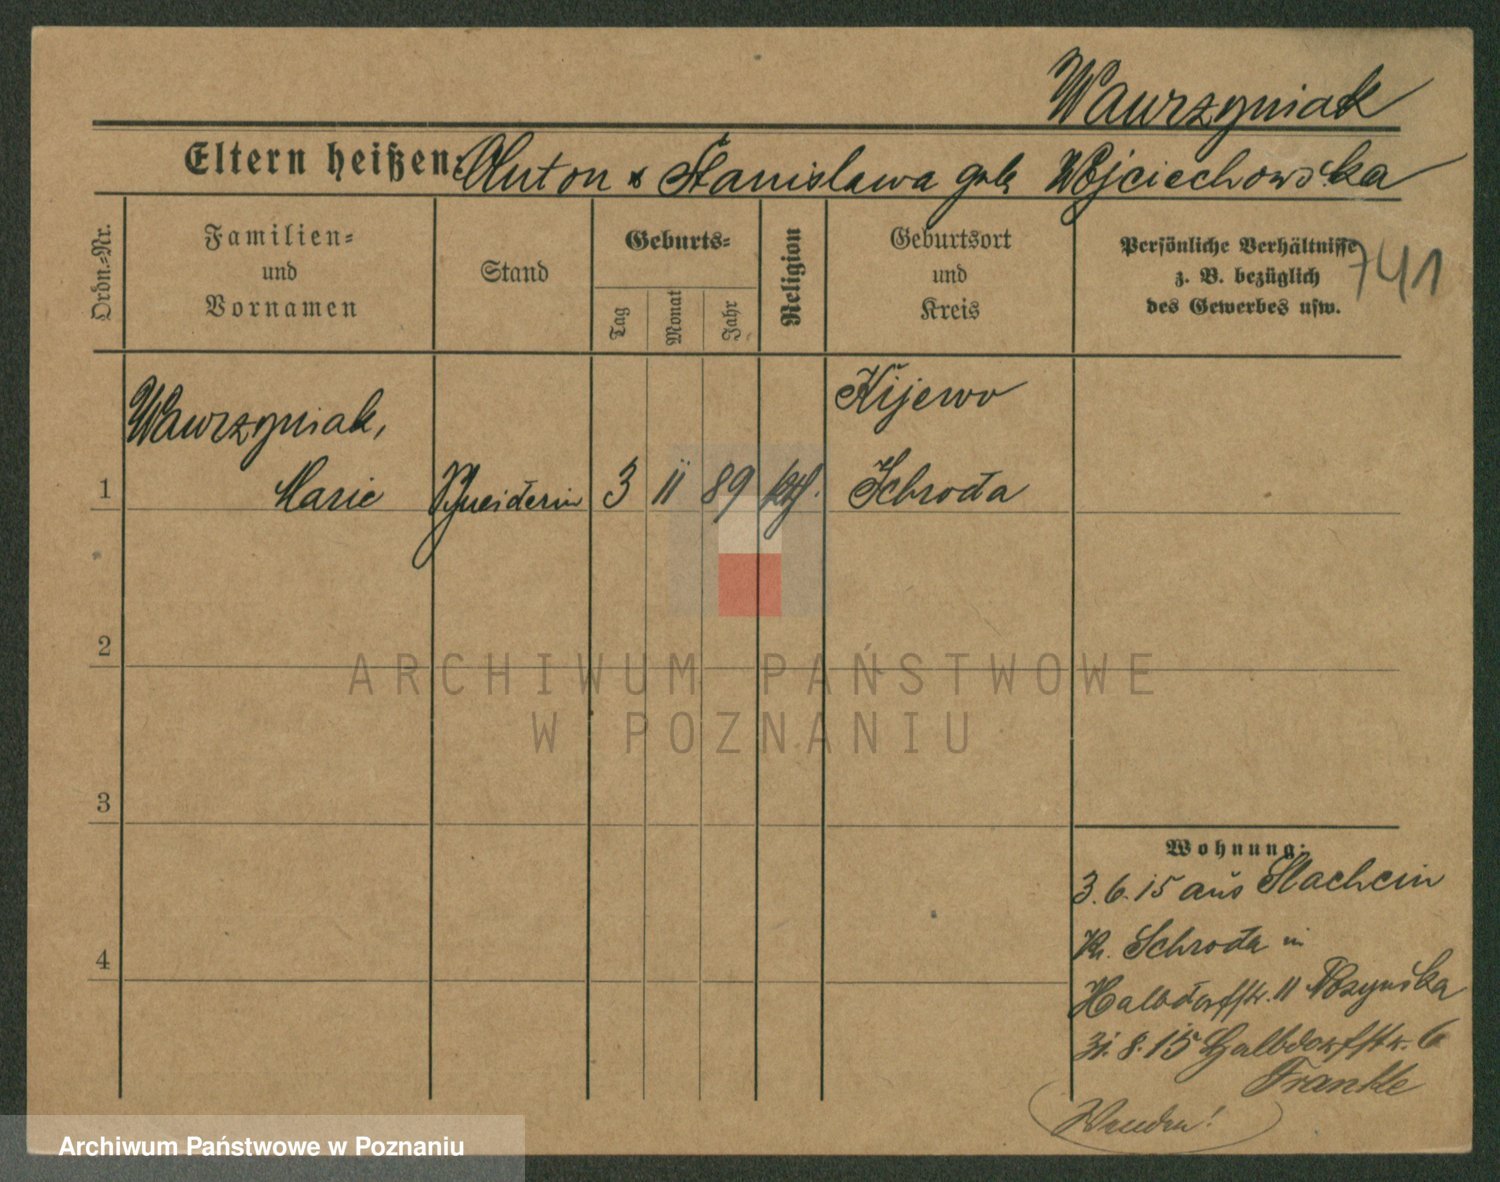 Wawrzyniak
Eltern heißen: Anton & Stanislawa geb. Wojciechowska
Ordn.-Nr.
Familien-
und
Vornamen
Stand
Geburts-
Tag
Monat
Jahr
Religion
Geburtsort
und
Kreis
Persönliche Verhältnisse
z. B. bezüglich
des Gewerbes usw.
741
Wawrzyniak,
Kijewo
1 Marie Schneiderin 3 11 89 kth. Schroda
2
3
4
ARCHIWUM PAŃSTWOWE
W POZNANIU
Wohnung:
3.6.15 aus
Kr. Schroda in
Halbdorfstr. 11
31.8.15 Halbdorfstr. 6
Wenden!
Archiwum Państwowe w Poznaniu